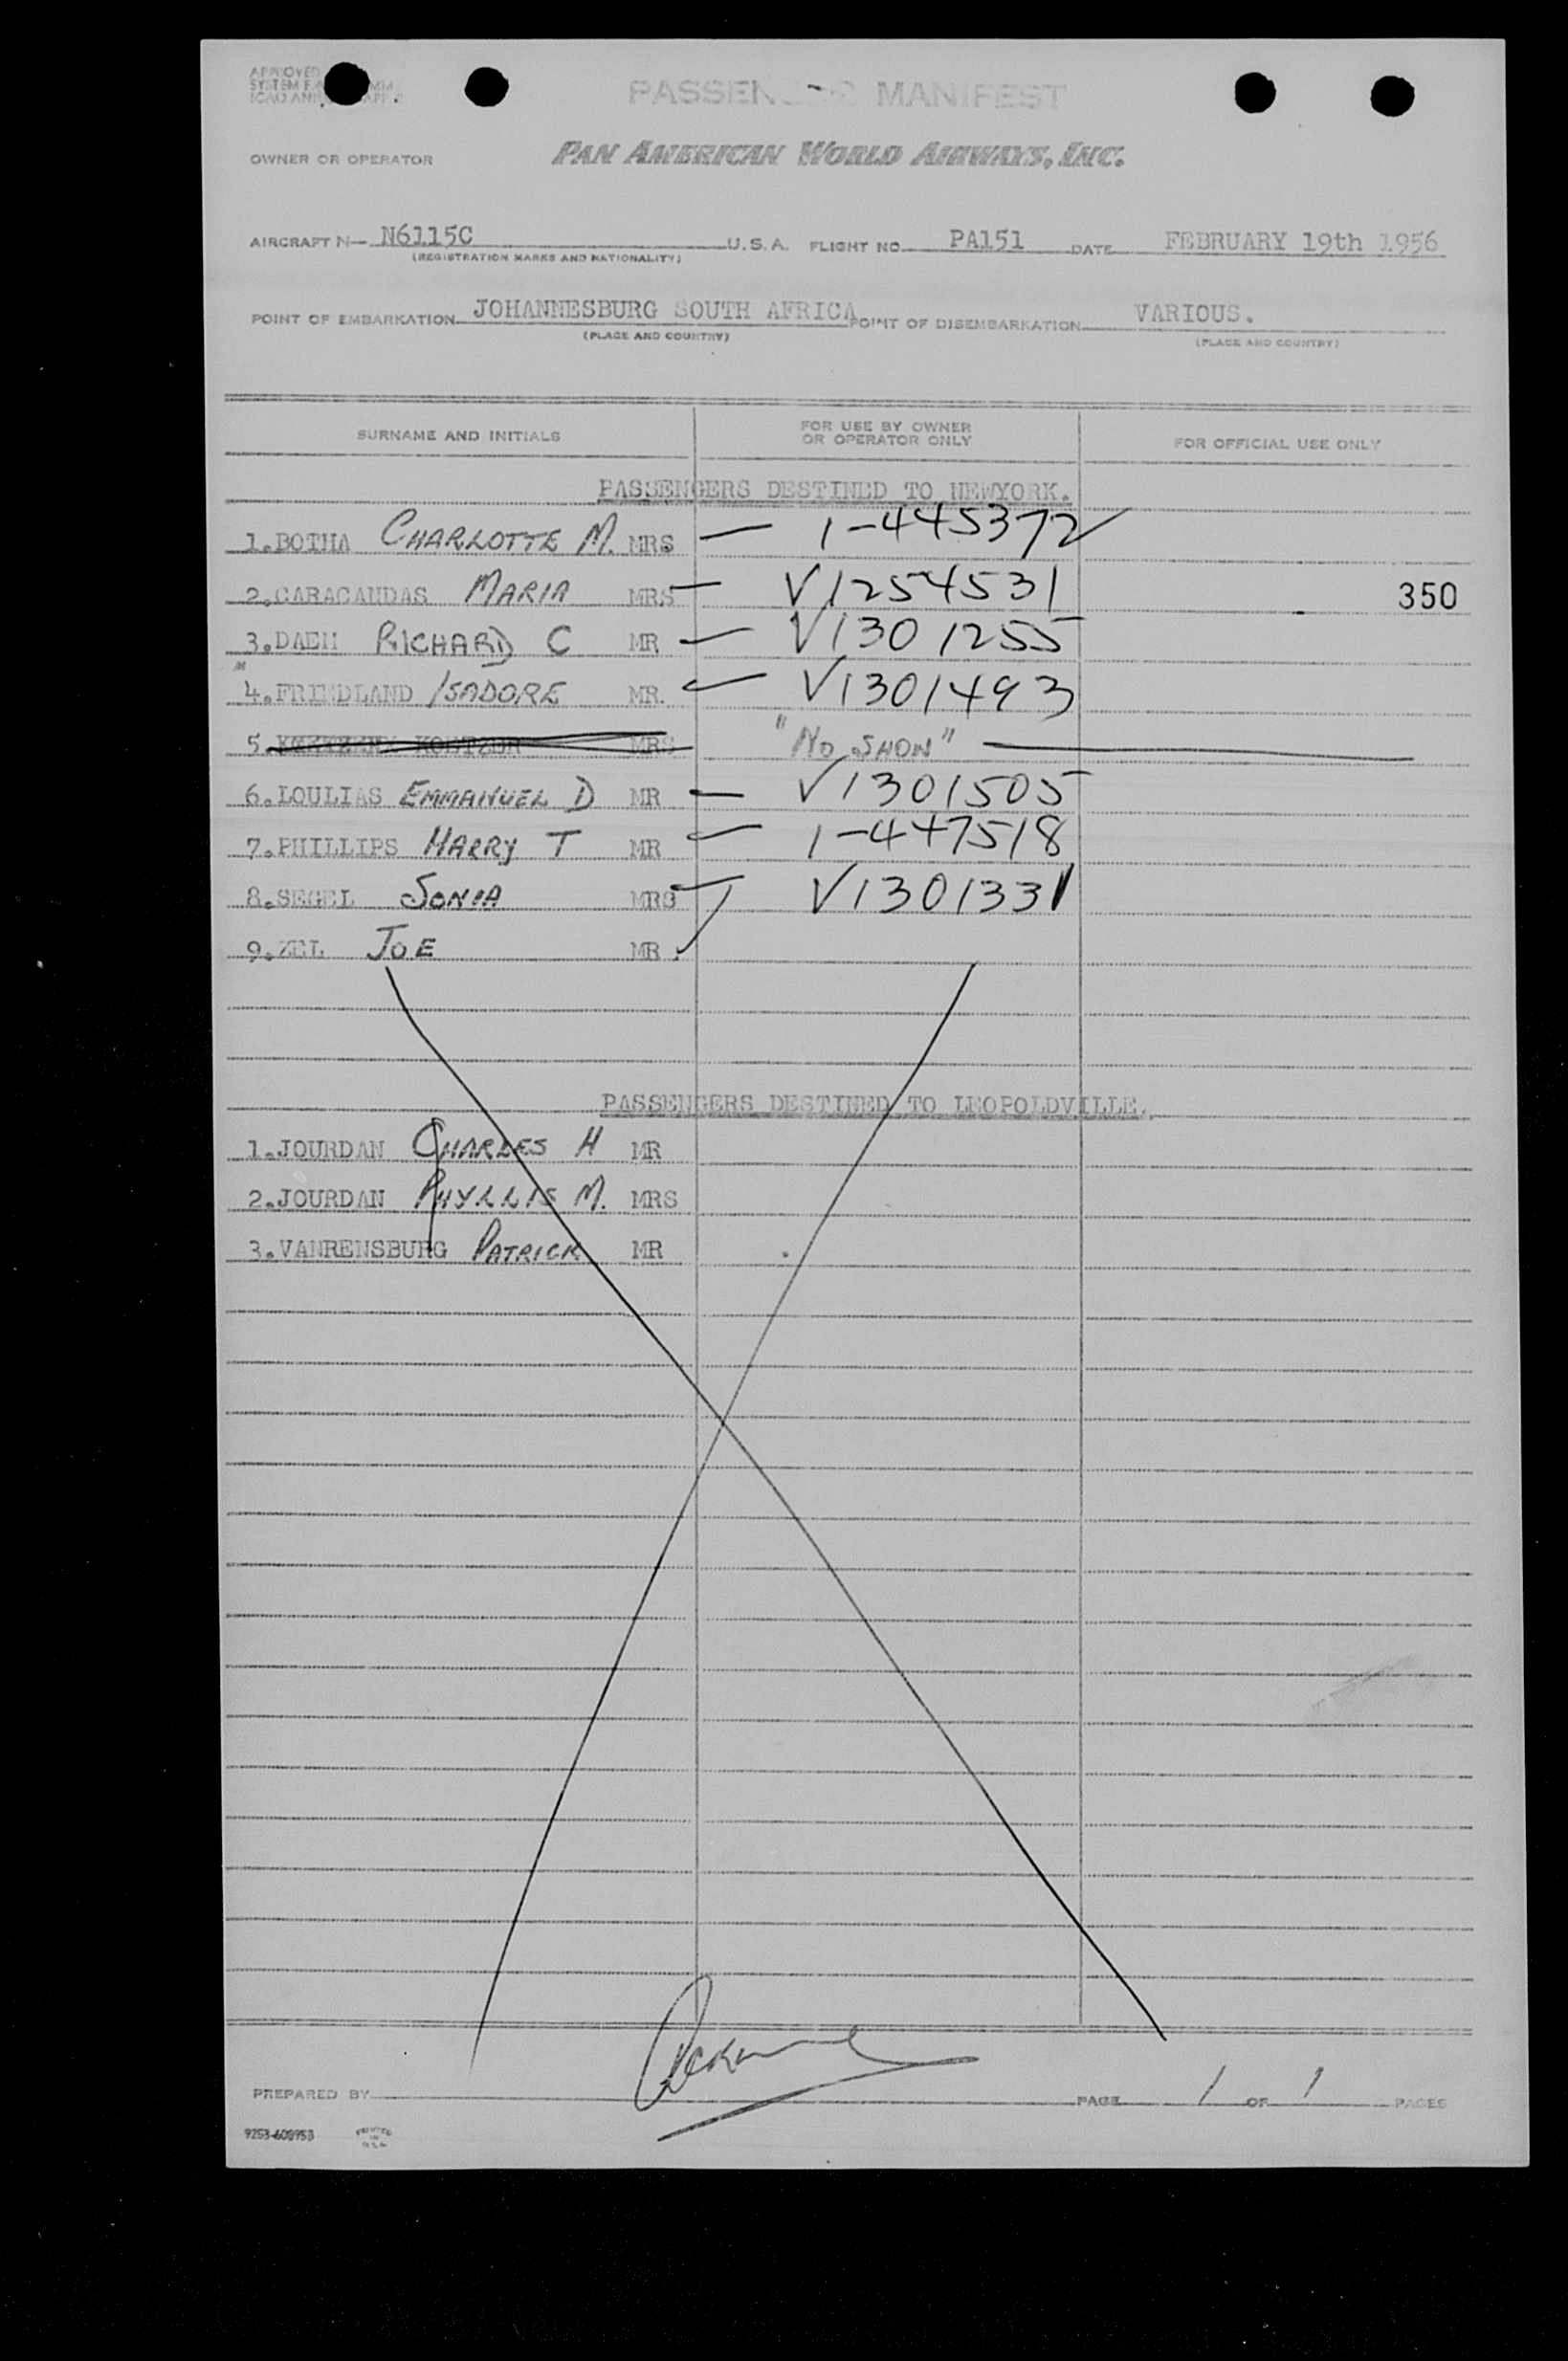 APPROVED
SYSTEM
PASSENGER MANIFEST
OWNER OR OPERATOR PAN AMERICAN WORLD AIRWAYS, INC.
AIRCRAFT N— N6115C U.S.A. FLIGHT NO. PA151 DATE FEBRUARY 19th 1956
(REGISTRATION MARKS AND NATIONALITY)
POINT OF EMBARKATION JOHANNESBURG SOUTH AFRICA POINT OF DISEMBARKATION VARIOUS.
(PLACE AND COUNTRY) (PLACE AND COUNTRY)
SURNAME AND INITIALS FOR USE BY OWNER OR OPERATOR ONLY FOR OFFICIAL USE ONLY
PASSENGERS DESTINED TO NEWYORK.
1.BOTHA CHARLOTTE M. MRS — 1-445372
2.CARACANDAS MARIA MRS — V1254531 350
3.DAEH RICHARD C MR — V1301255
4.FRIEDLAND ISADORE MR. — V1301493
5. KOETZER MRS "NO SHOW"
6.LOULIAS EMMANUEL D MR — V1301505
7.PHILLIPS HARRY T MR — 1-447518
8.SEGEL SONIA MRS V1301331
9.ZEL JOE MR.
PASSENGERS DESTINED TO LEOPOLDVILLE.
1.JOURDAN CHARLES H MR
2.JOURDAN PHYLLIS M. MRS
3.VANRENSBURG PATRICK MR
PREPARED BY PAGE 1 OF 1 PAGES
9253-600953 PRINTED IN U.S.A.